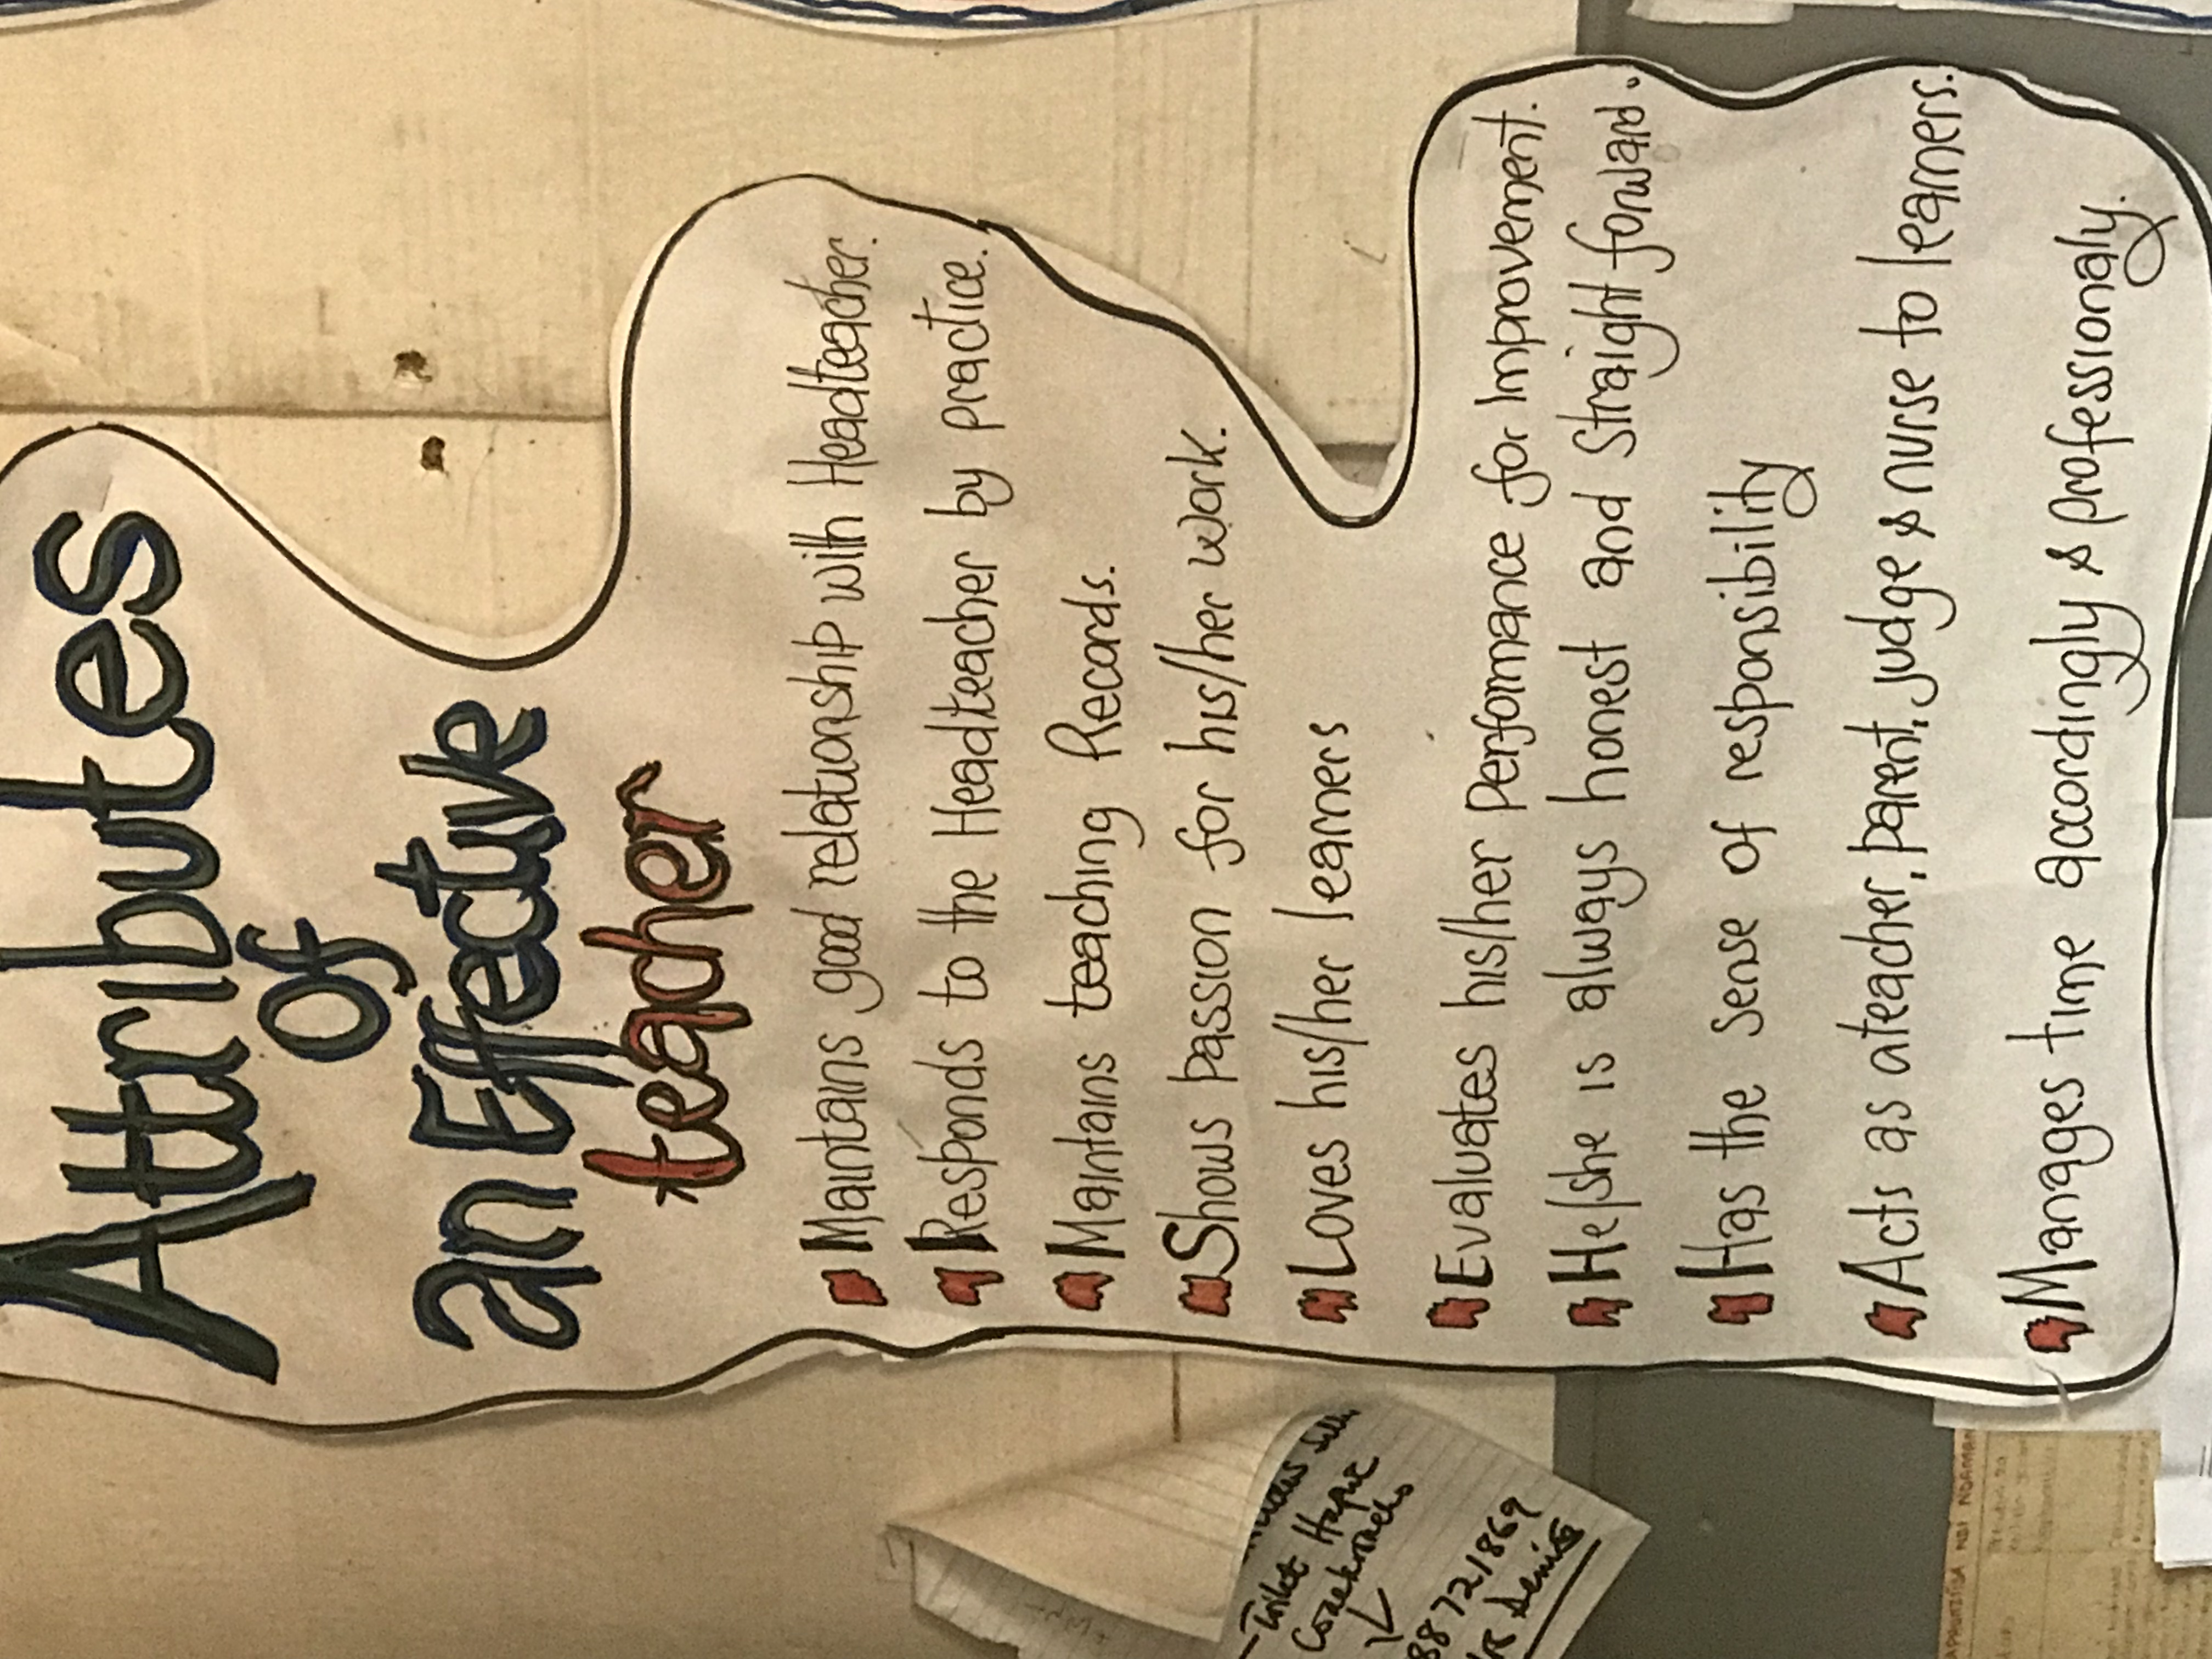 Attributes
Of
an Effective
teacher
Maintains good relationship with Headteacher.
Responds to the Headteacher by practice.
Maintains teaching Records.
Shows Passion for his/her work.
Loves his/her learners
Evaluates his/her Performance for Improvement.
He/she is always honest and Straight forward.
Has the sense of responsibility
Acts as ateacher, parent, judge & nurse to learners.
Manages time accordingly & professionaly.
Toilet
88721869